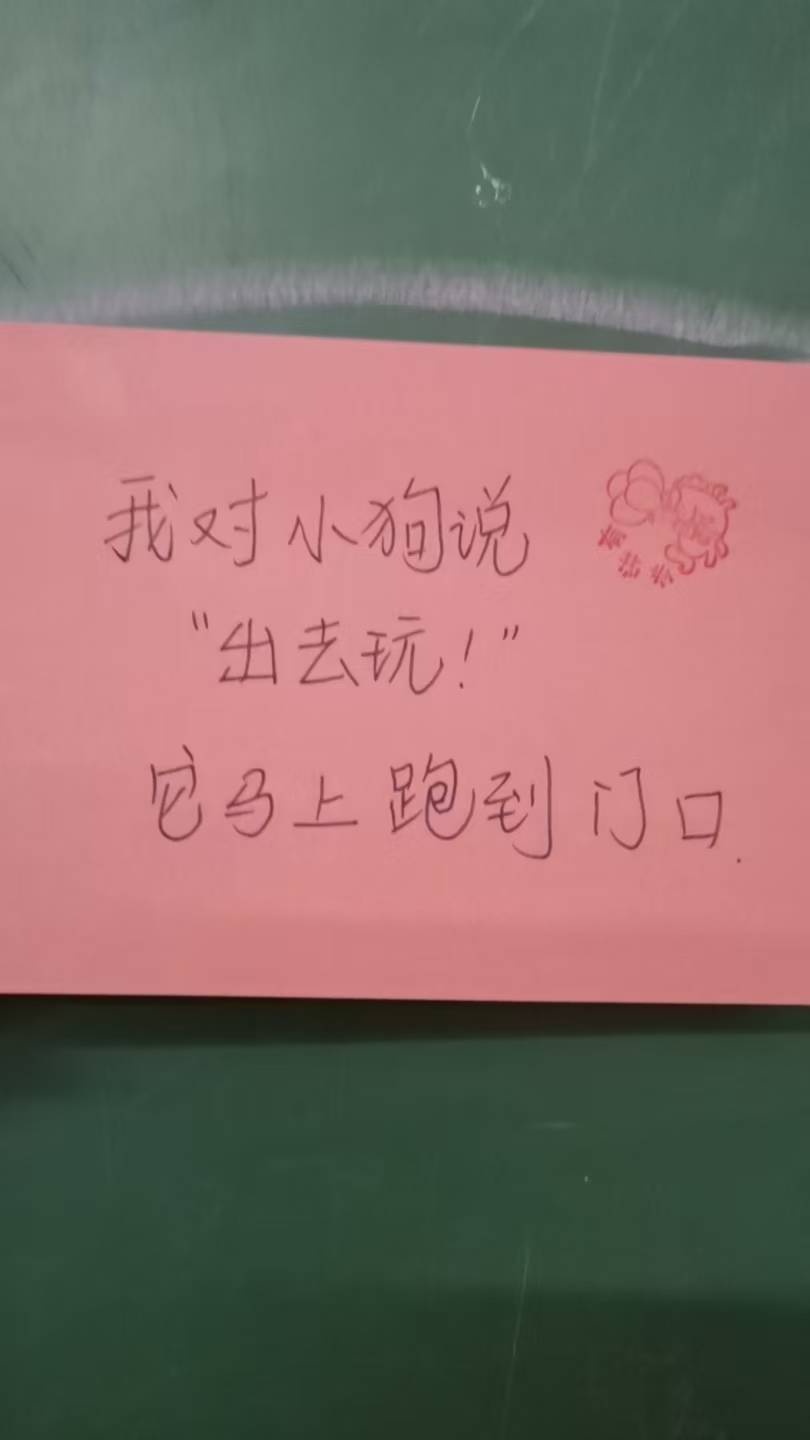 我对小狗说
"出去玩！"
它马上跑到门口.